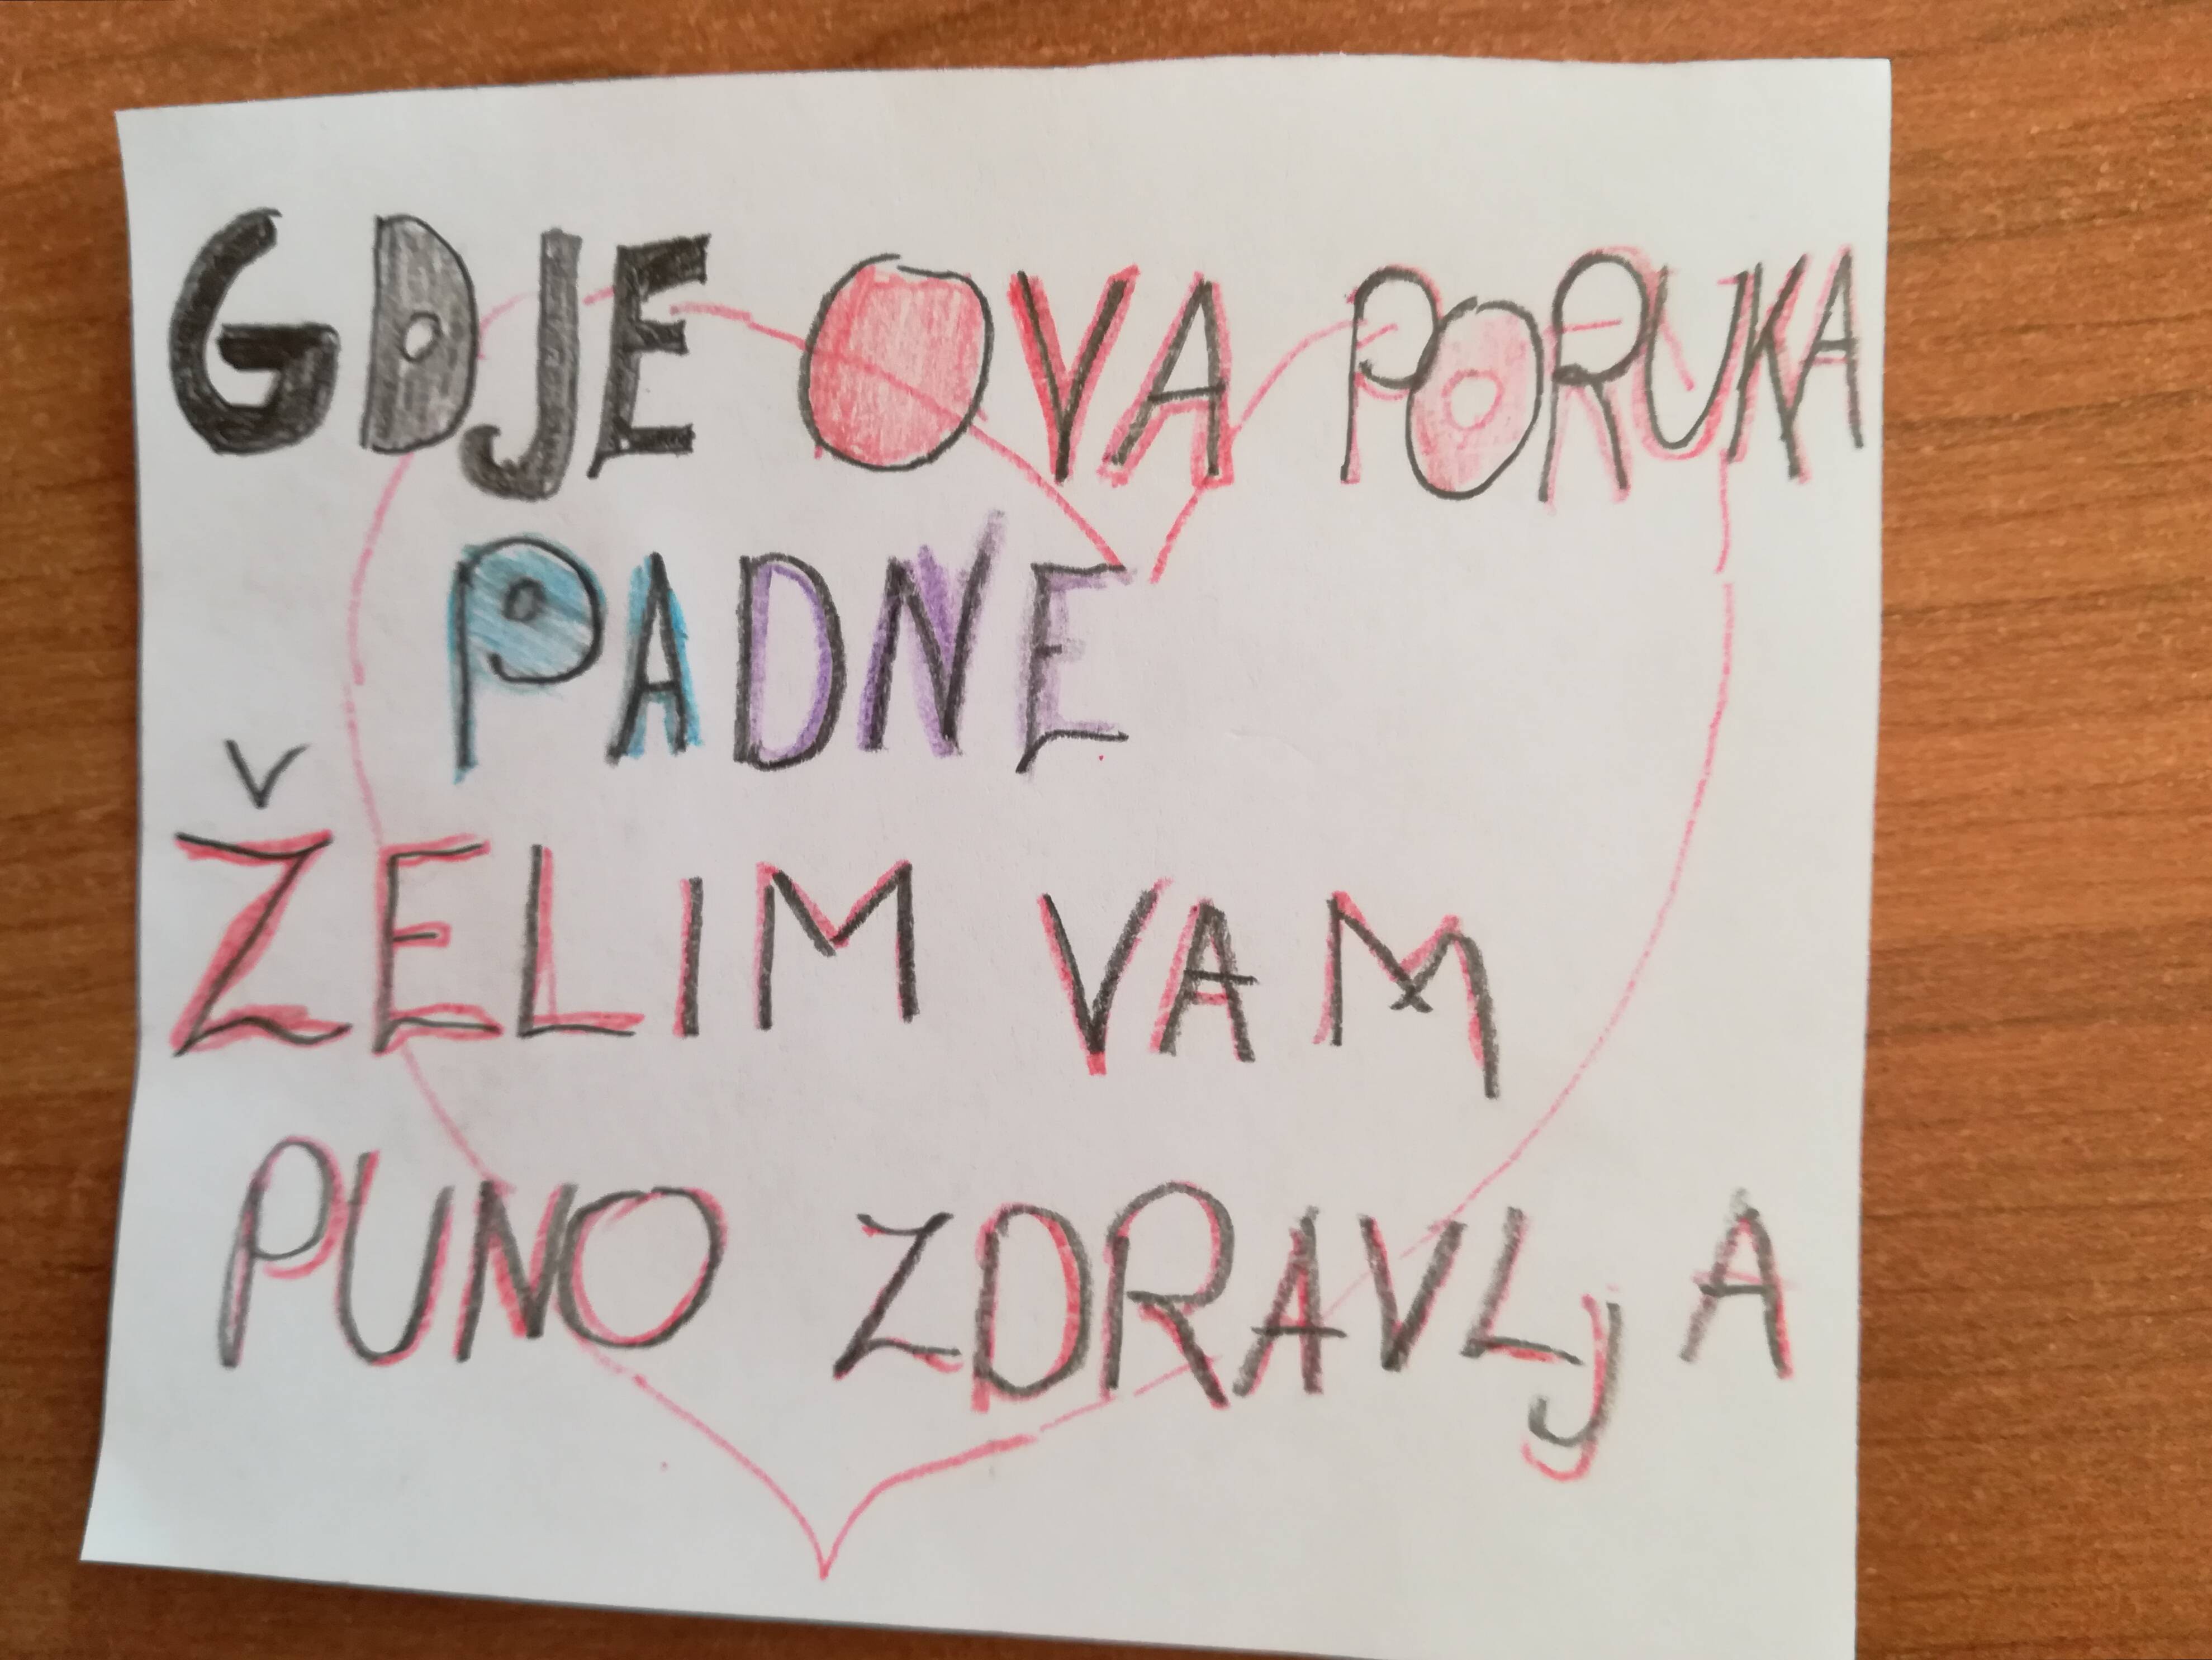 GDJE OVA PORUKA
PADNE
ŽELIM VAM
PUNO ZDRAVLjA